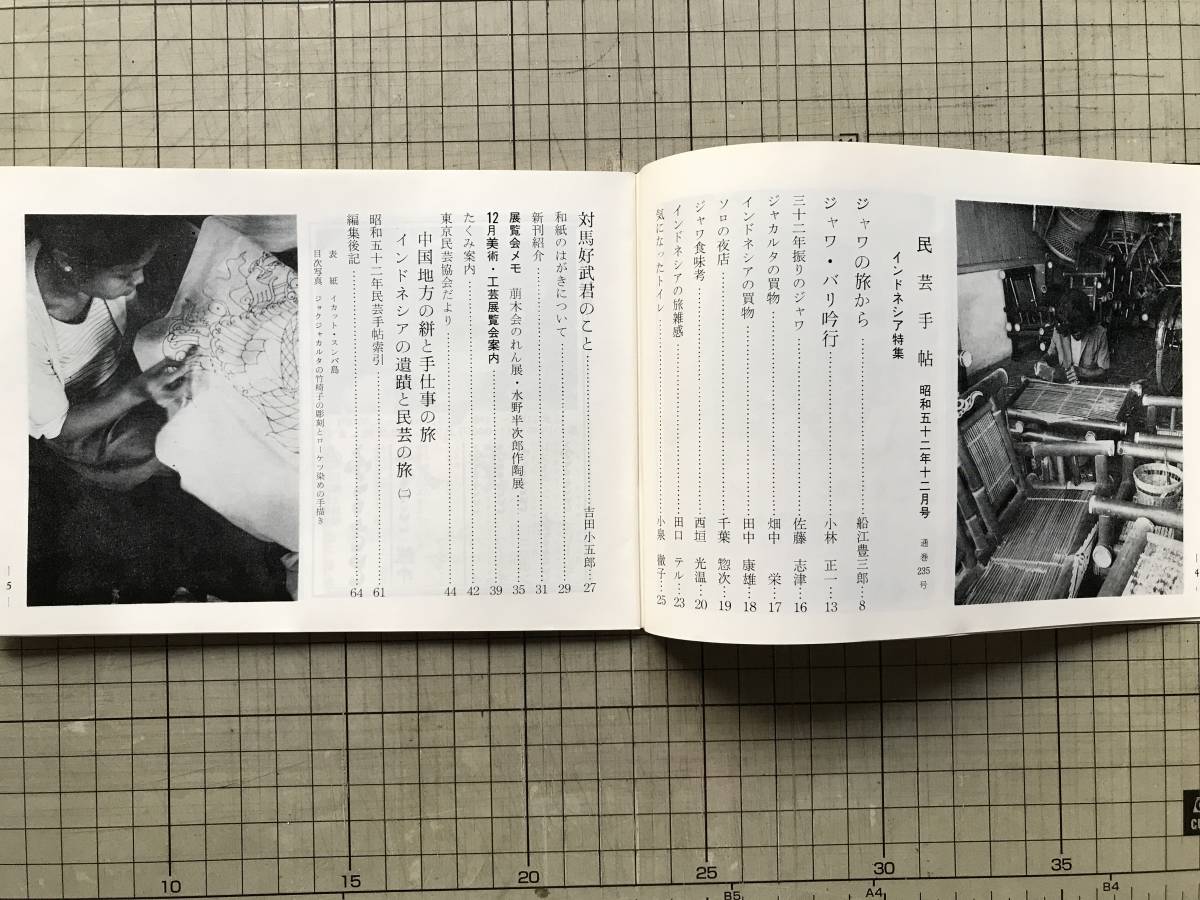 民芸手帖 昭和五十二年十二月号 通巻235号
インドネシア特集
ジャワの旅から……船江豊三郎…8
ジャワ・バリ吟行……小林 正一…13
三十二年振りのジャワ……佐藤 志津…16
ジャカルタの買物……畑中 栄…17
インドネシアの買物……田中 康雄…18
ソロの夜店……千葉 惣次…19
ジャワ食味考……西垣 光温…20
インドネシアの旅雑感……田口 テル…23
気になったトイレ……小泉 徹子…25
4
対馬好武君のこと……吉田小五郎…27
和紙のはがきについて……29
新刊紹介……31
展覧会メモ 萠木会のれん展・水野半次郎作陶展……35
12月美術・工芸展覧会案内……39
たくみ案内……42
東京民芸協会だより……44
中国地方の絣と手仕事の旅
インドネシアの遺蹟と民芸の旅(二)
昭和五十二年民芸手帖索引……61
編集後記……64
表紙 イカット・スンバ島
目次写真 ジョクジャカルタの竹椅子の彫刻とローケツ染めの手描き
5
10
15
20
25
30
35
B5
A4
B4